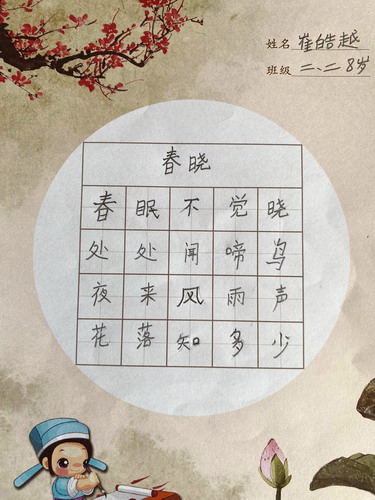 姓名 崔皓越
班级 二、二 8岁
春晓
春眠不觉晓
处处闻啼鸟
夜来风雨声
花落知多少